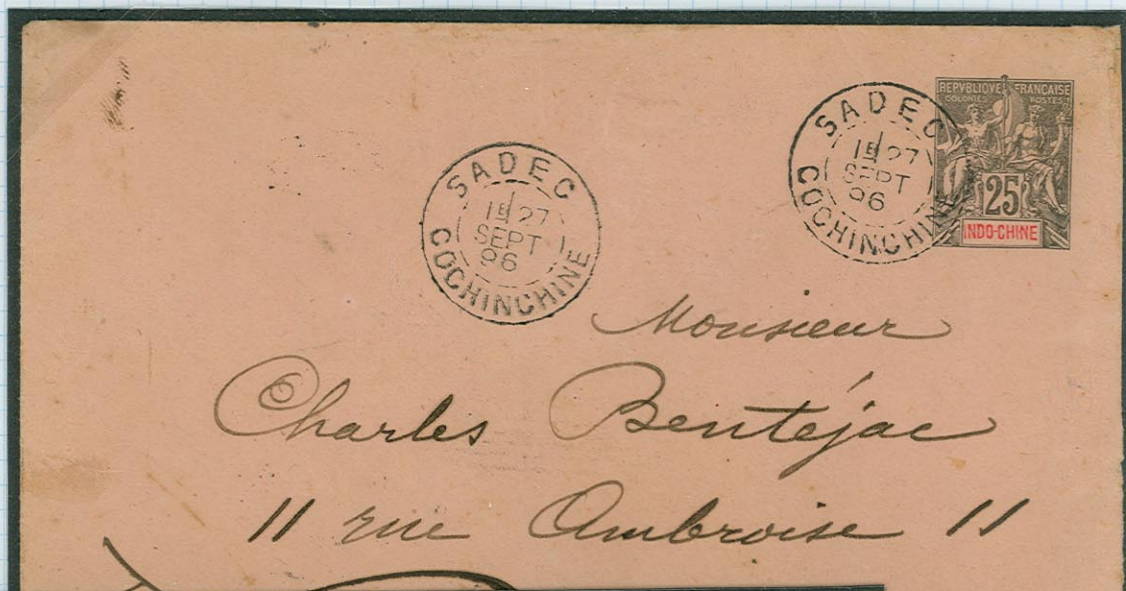 SADEC
1E 27
SEPT
96
COCHINCHINE
SADEC
1E 27
SEPT
96
COCHINCHINE
REPVBLIQVE FRANÇAISE
COLONIES POSTES
25
INDO-CHINE
Monsieur
Charles Bentéjac
11 rue Ambroise 11